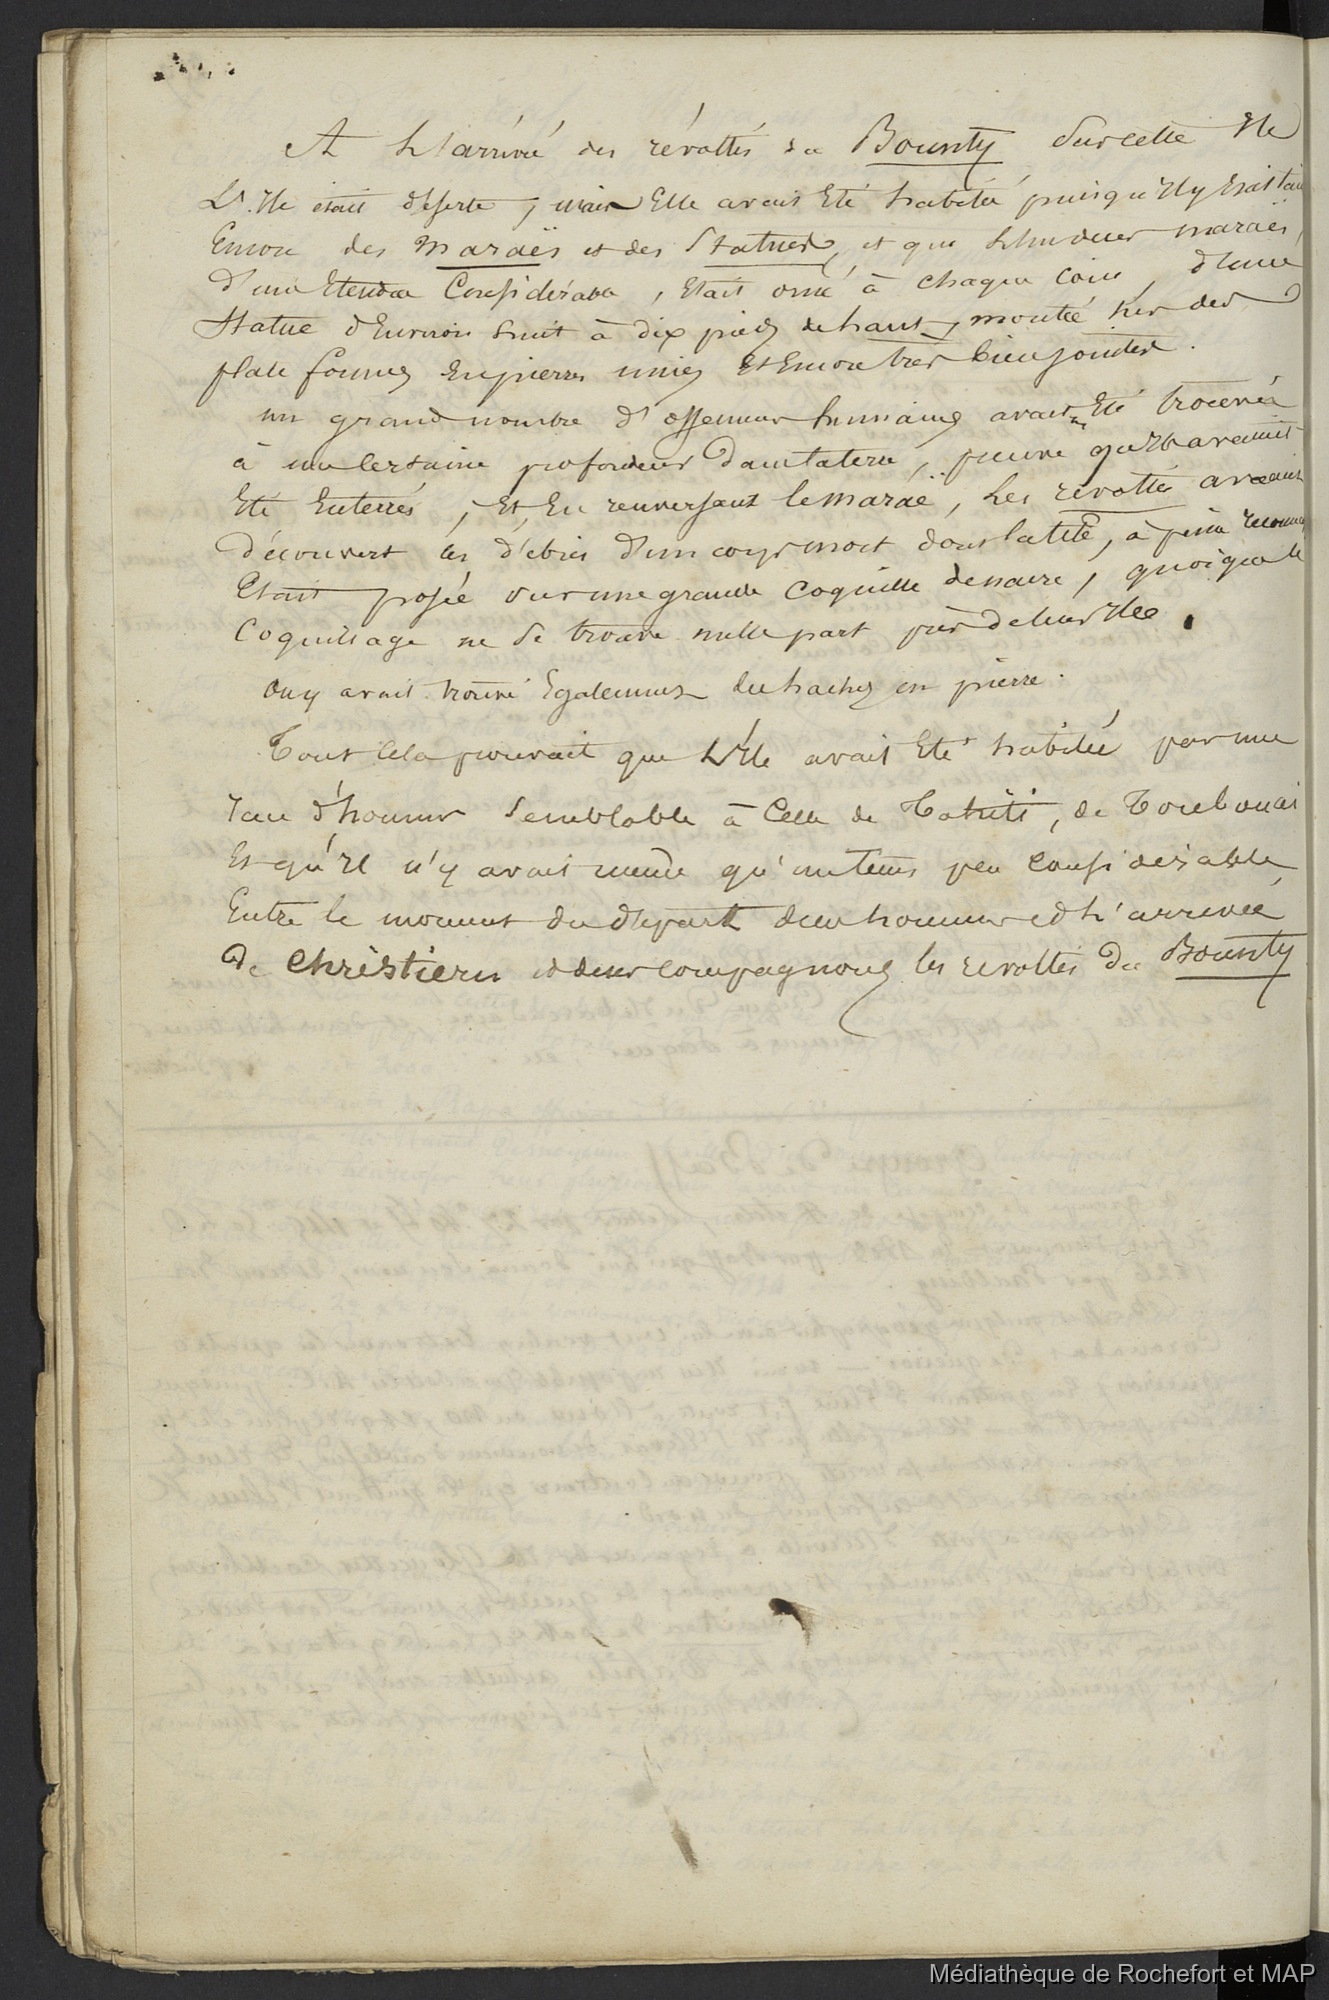 A l'arrivée des révoltés du Bounty sur cette Ile
L'Ile était déserte, mais Elle avait Eté habitée puisqu'Il y Existait
Encore des maraës et des Statues, et que l'un de ces maraës,
d'une Etendue Considérable, Etait orné à chaque Coin, d'une
Statue d'Environ huit à dix pieds de haut, montée sur des
plate formes En pierres unies Et Encore très bien jointes.
un grand nombre d'ossemens humains avait Eté trouvés
à une Certaine profondeur dans la terre, preuve qu'Ils avaient
Eté Enterrés, Et En renversant le maraë, les révoltés avaient
découvert les débris d'un corps mort dont la tête, à peine reconnue
Etait posée sur une grande Coquille de nacre, quoique le
Coquillage ne se trouve nulle part près de leur Ile.
on y avait trouvé Egalement des haches en pierre.
Tout Cela prouvait que L'Ile avait Eté habitée par une
race d'hommes Semblable à Celle de Tahiti, de Toubouai
Et qu'Il n'y avait même qu'un tems peu Considérable
Entre le moment du départ de ces hommes et l'arrivée
de Christiern et de ses compagnons les révoltés du Bounty
Médiathèque de Rochefort et MAP